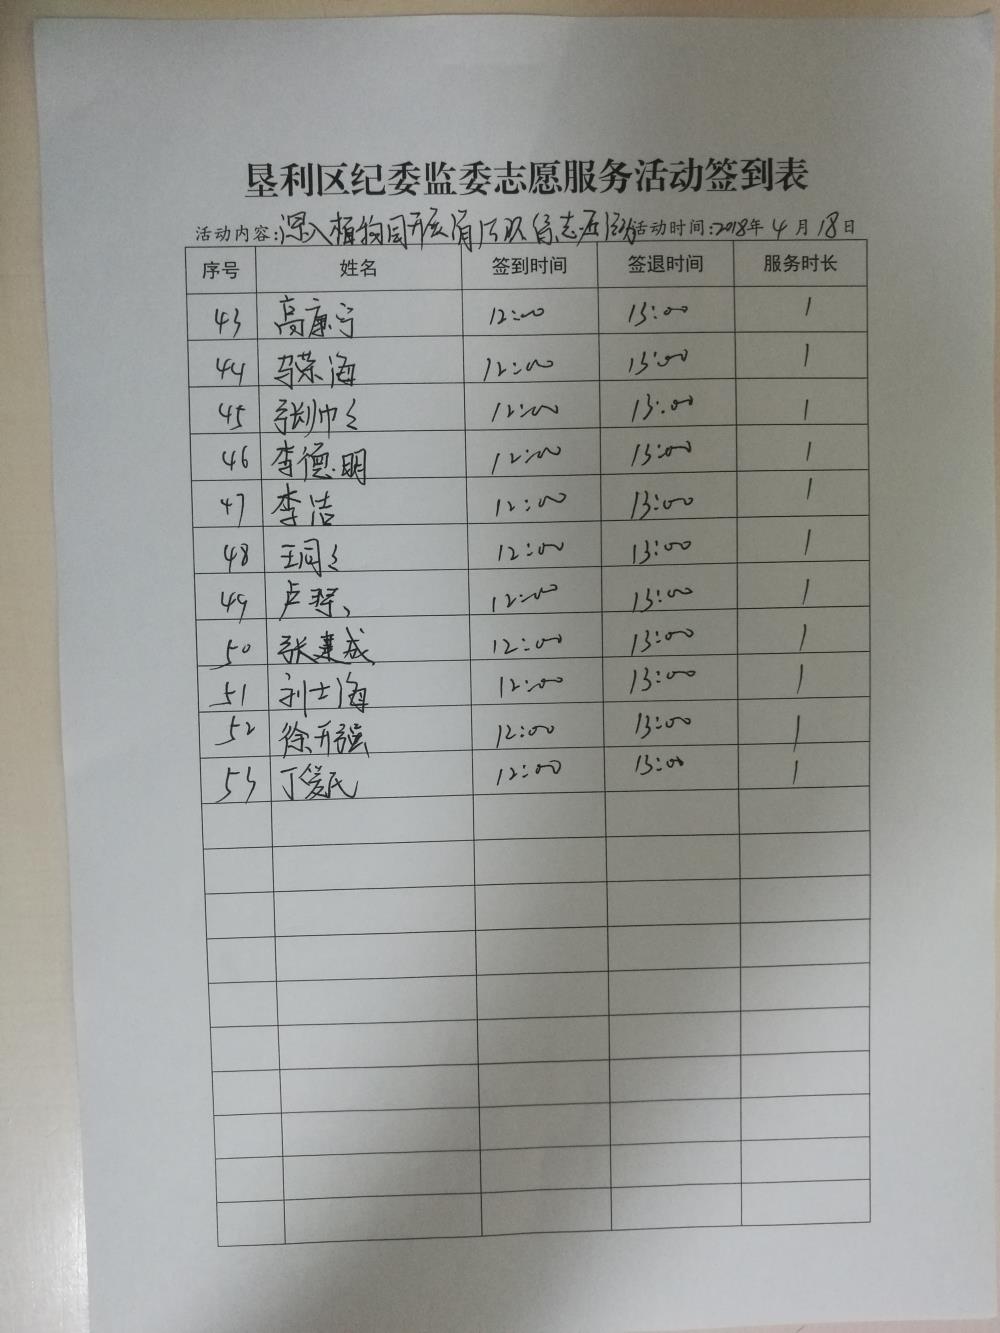 垦利区纪委监委志愿服务活动签到表
活动内容:深入植物园开展清污除志愿活动 活动时间:2018年4月18日
序号 姓名 签到时间 签退时间 服务时长
43 高廉宁 12:00 13:00 1
44 马荣海 12:00 13:00 1
45 张帅々 12:00 13:00 1
46 李德明 12:00 13:00 1
47 李洁 12:00 13:00 1
48 王同々 12:00 13:00 1
49 卢 12:00 13:00 1
50 张建成 12:00 13:00 1
51 刘士海 12:00 13:00 1
52 徐开强 12:00 13:00 1
53 丁爱民 12:00 13:00 1